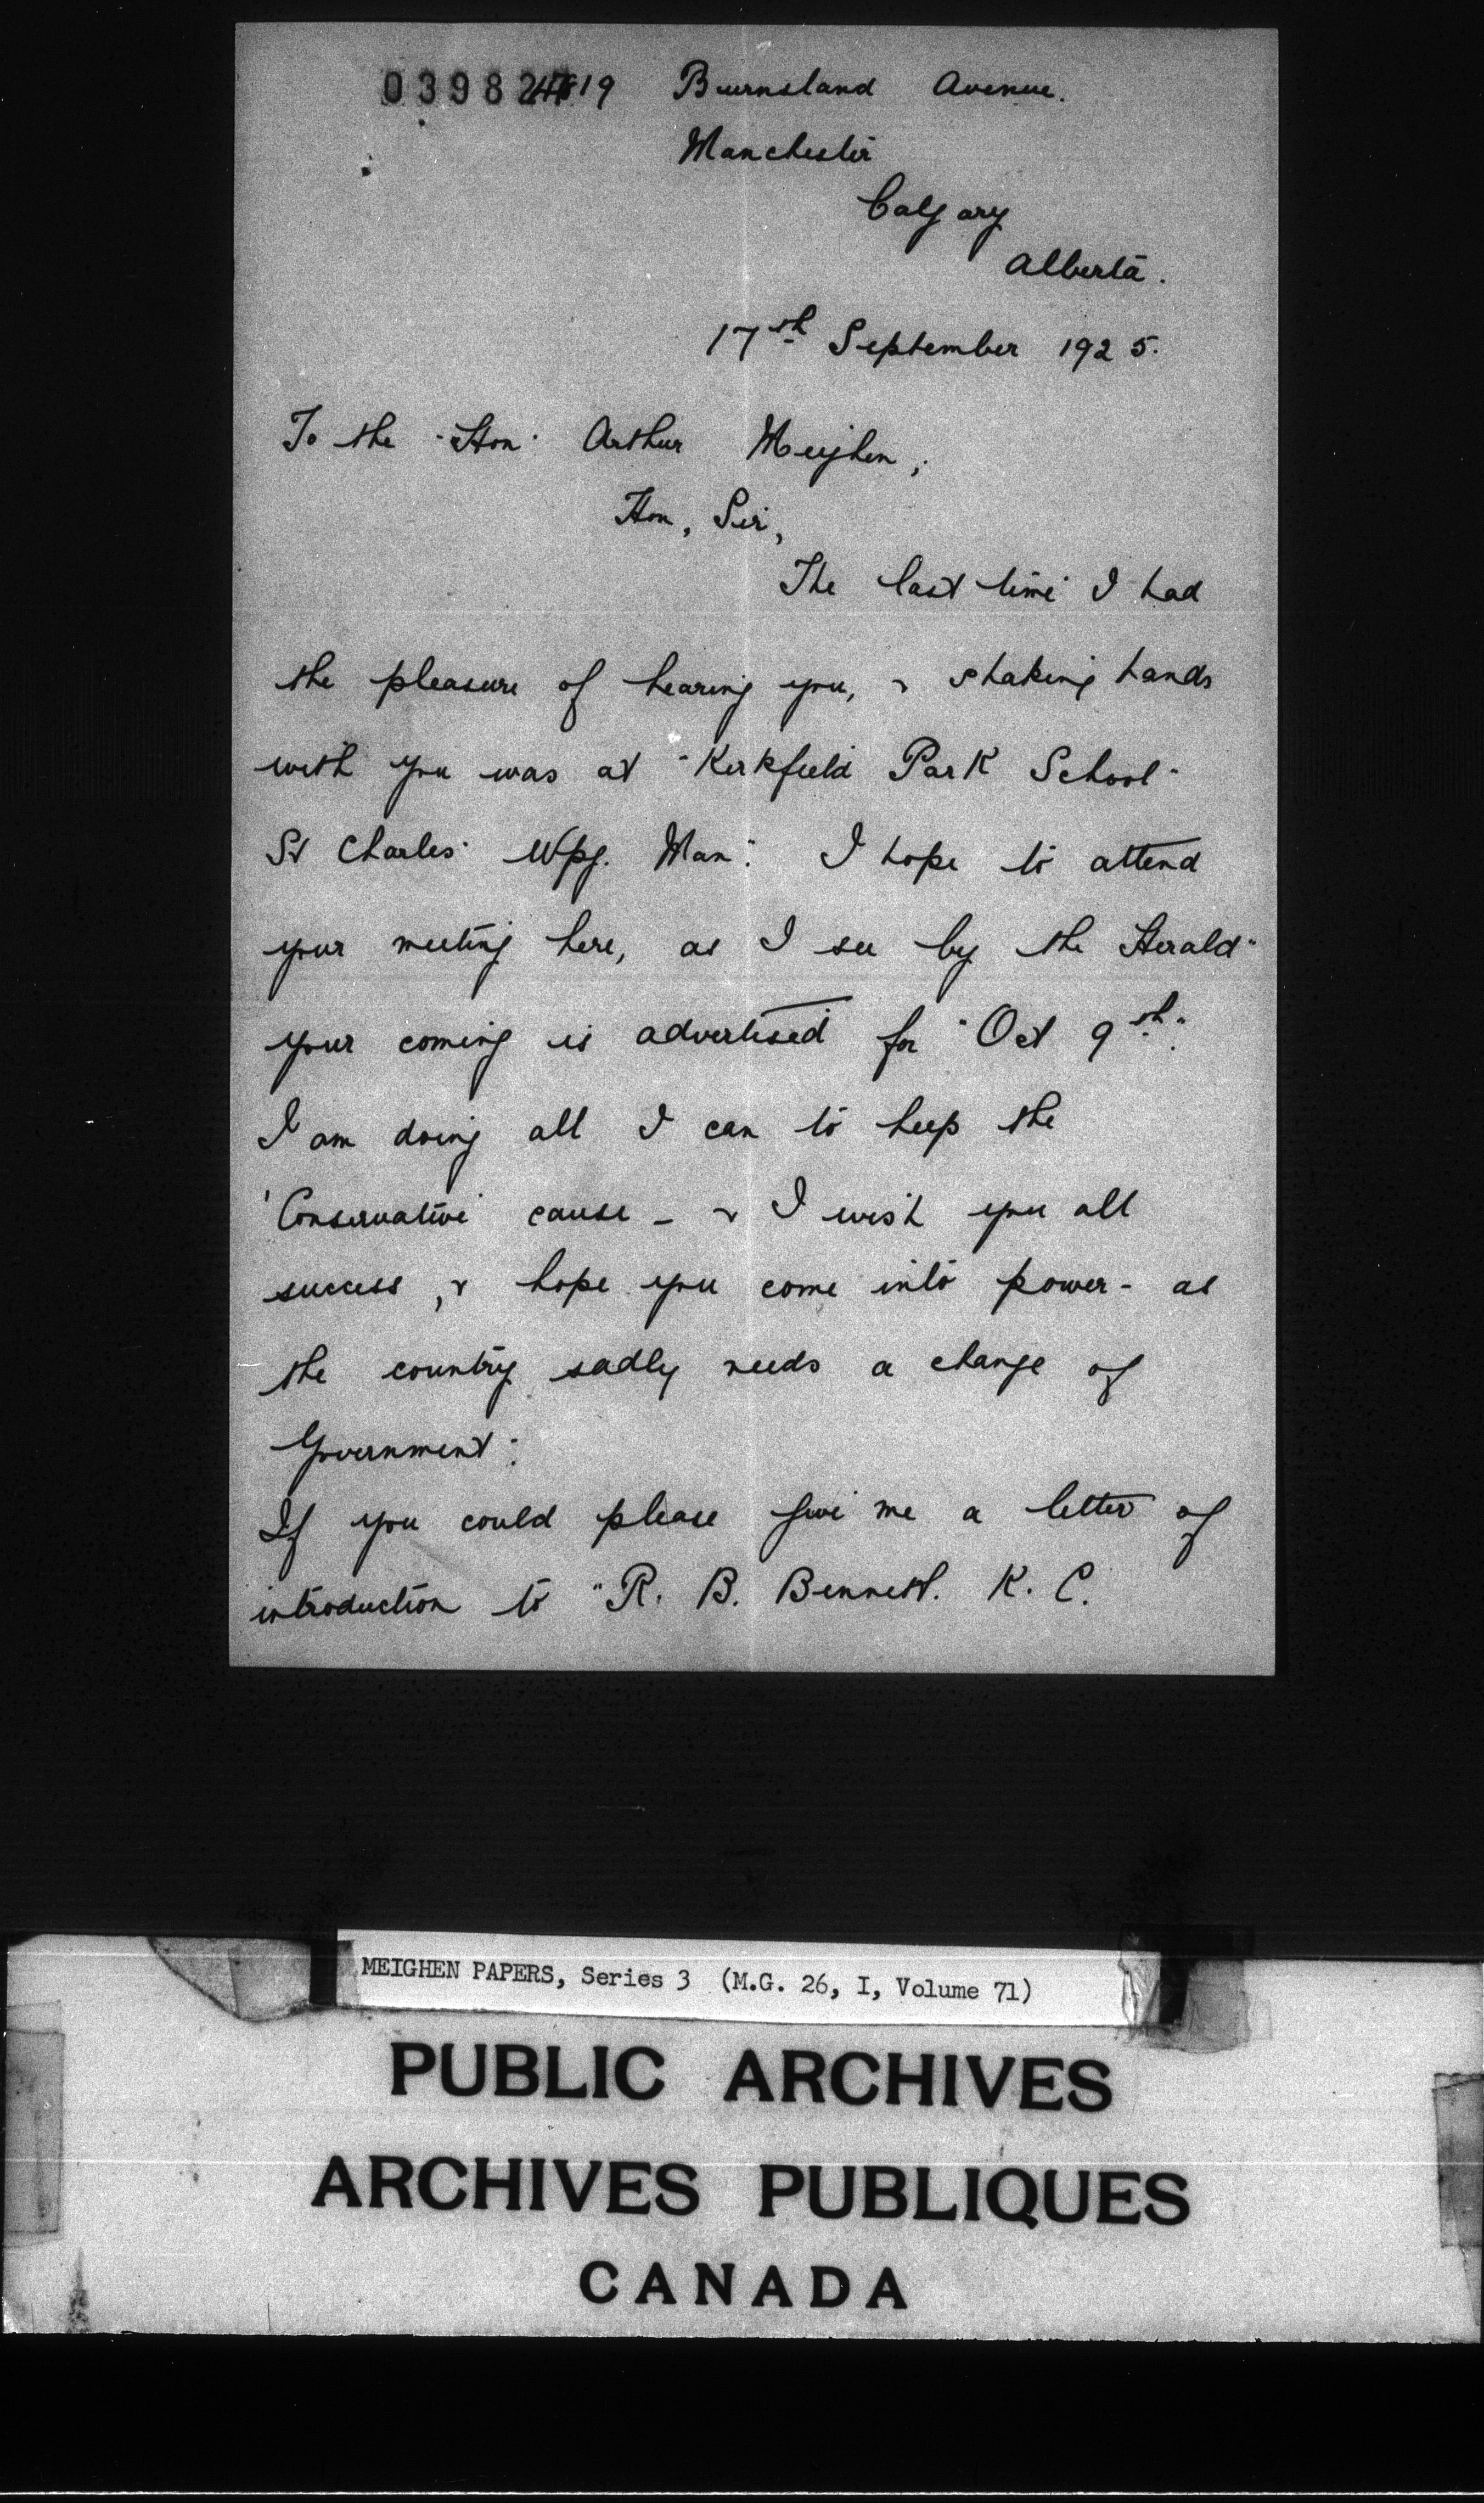 4619 Burnsland Avenue.
Manchester
Calgary
Alberta.
17th September 1925.
To the "Hon" Arthur Meighen,
Hon, Sir,
The last time I had
the pleasure of hearing you, & shaking hands
with you was at "Kirkfield Park School"
St Charles" Wpg. Man". I hope to attend
your meeting here, as I see by the Herald"
your coming is advertised for "Oct 9th".
I am doing all I can to keep the
'Conservative' cause - & I wish you all
success, & hope you come into power - as
the country sadly needs a change of
Government:
If you could please give me a letter of
introduction to "R. B. Bennett. K. C.
MEIGHEN PAPERS, Series 3 (M.G. 26, I, Volume 71)
PUBLIC ARCHIVES
ARCHIVES PUBLIQUES
CANADA